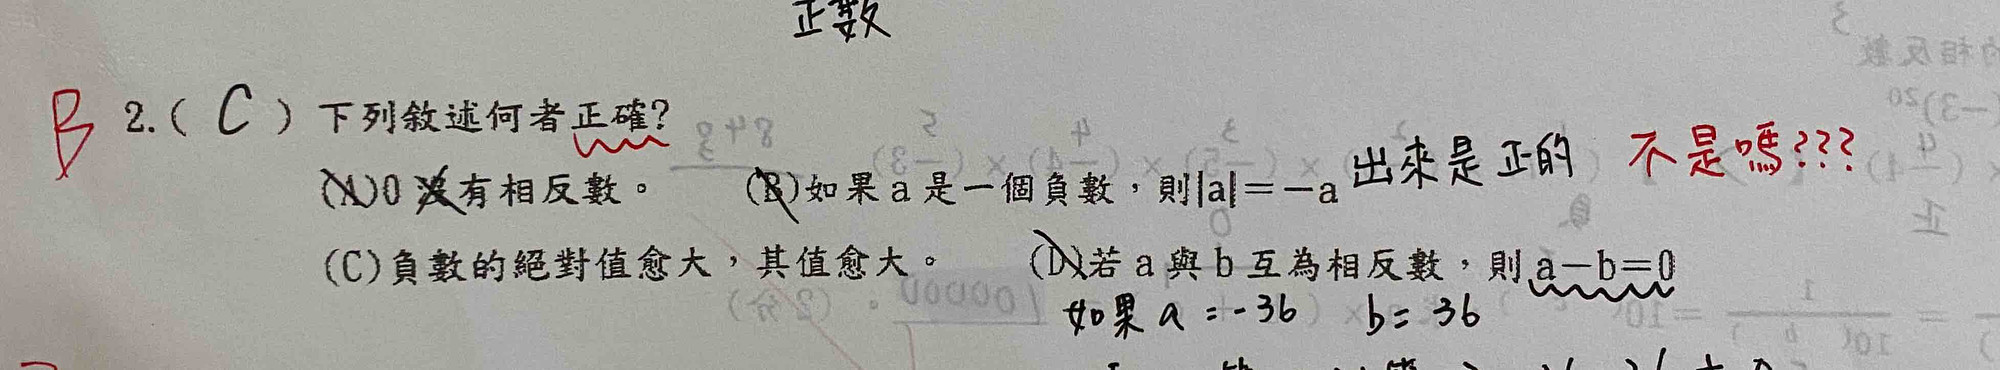 正數
B 2.( C ) 下列敘述何者正確?
(A)0沒有相反數。 (B)如果a是一個負數，則|a|=−a 出來是正的 不是嗎???
(C)負數的絕對值愈大，其值愈大。 (D)若a與b互為相反數，則a−b=0
如果 a = -36 b = 36